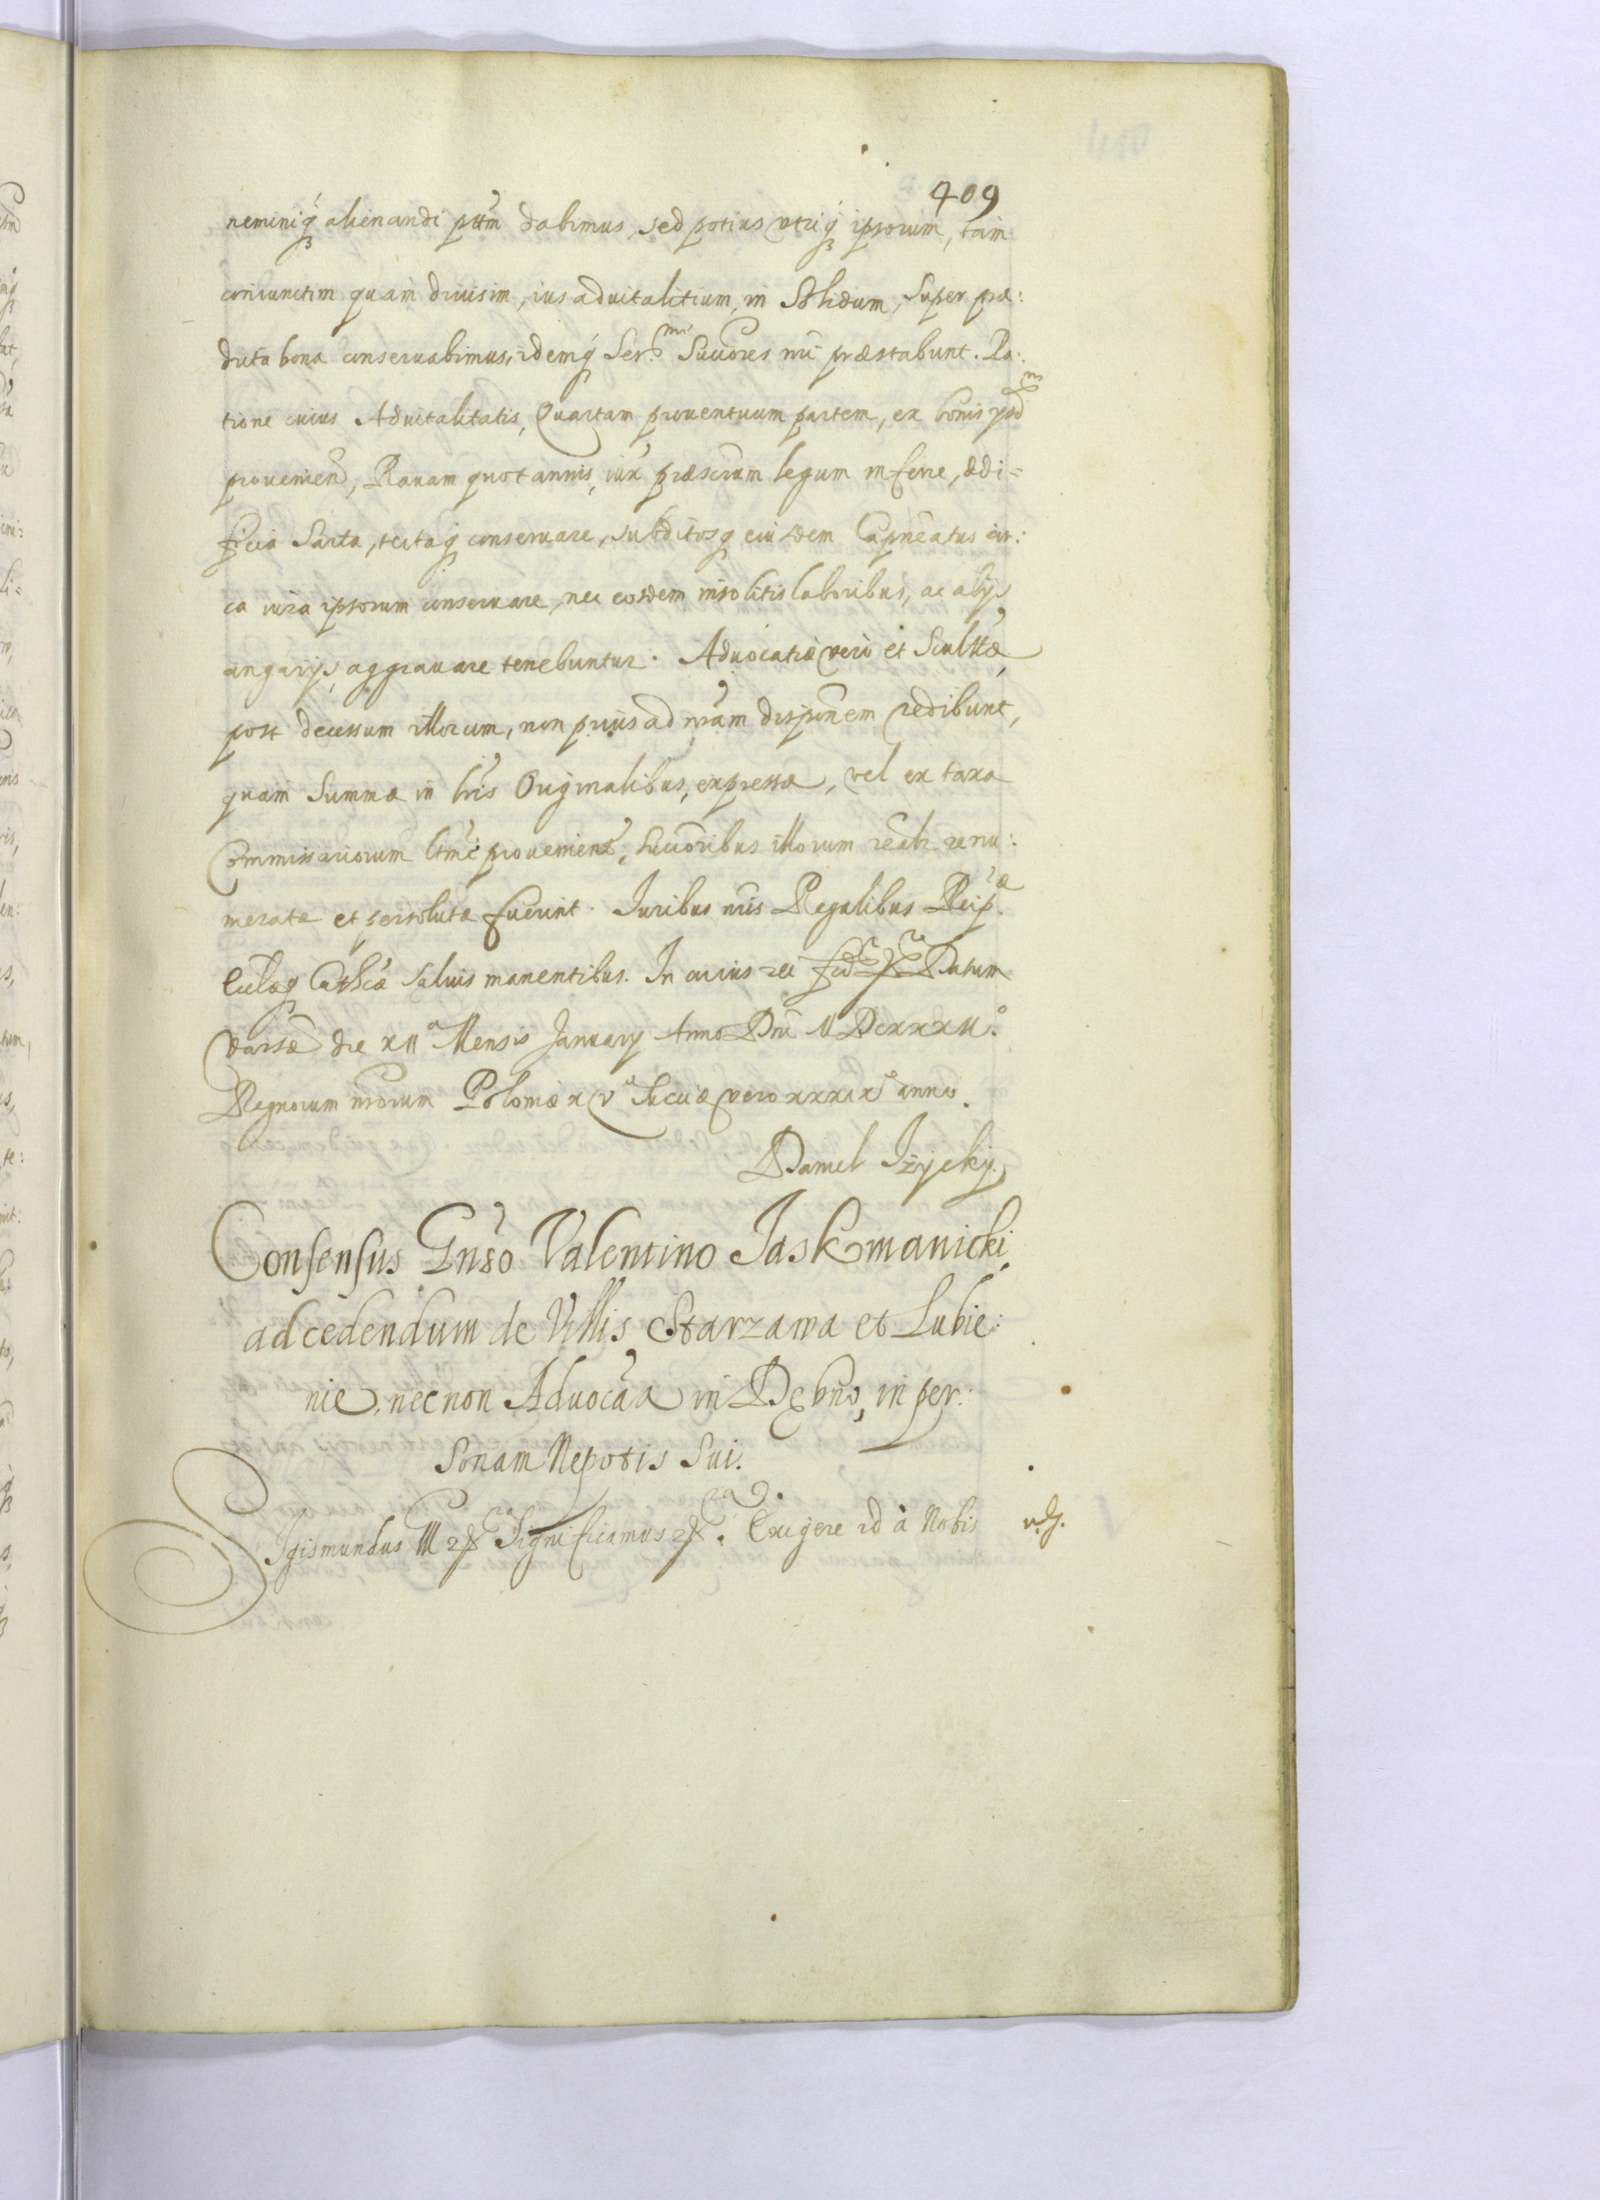 409
neminiq; alienandi pttm dabimus, sed potius utriq; ipsorum, tam
coniunctim quam diuisim, ius aduitalitium, in Solidum, super præ:
dicta bona conseruabimus, idemq; Ser.mi Succores nri præstabunt. Ra:
tione cuius Aduitalitatis, Quartam prouentuum partem, ex bonis
prouenien, Rauam quotannis, iux præscrum legum inferre, ædi=
ficia Sarta, tectaq; conseruare, subditosq; eiusdem Capneatus cir:
ca iura ipsorum conseruare, nec eosdem insolitis laboribus, ac alijs
angarijs, aggrauare tenebuntur. Aduocatiæ vero et Scultæ
post decessum illorum, non prius ad nram disponem redibunt,
quam Summæ in lris Originalibus, expressæ, vel ex taxa
Commissariorum ltme prouenient, succoribus illorum realr renu:
meratæ et persolutæ fuerint. Iuribus nris Regalibus Reip.cæ
Cclæq; Cathcæ saluis manentibus. In cuius rei fid Datum
Varsæ die XII Mensis January Anno Dni MDCXXXII.
Regnorum nrorum Poloniæ XLV Sueciæ vero XXXIX annis.
Daniel Iżycky
Consensus Gnso Valentino Jaskmanicki
ad cedendum de Villis Starzawa et Lubie:
nie, necnon Aduocaa in Dębno, in per:
sonam Nepotis Sui.
Sigismundus III Significamus. Exigere id à Nobis